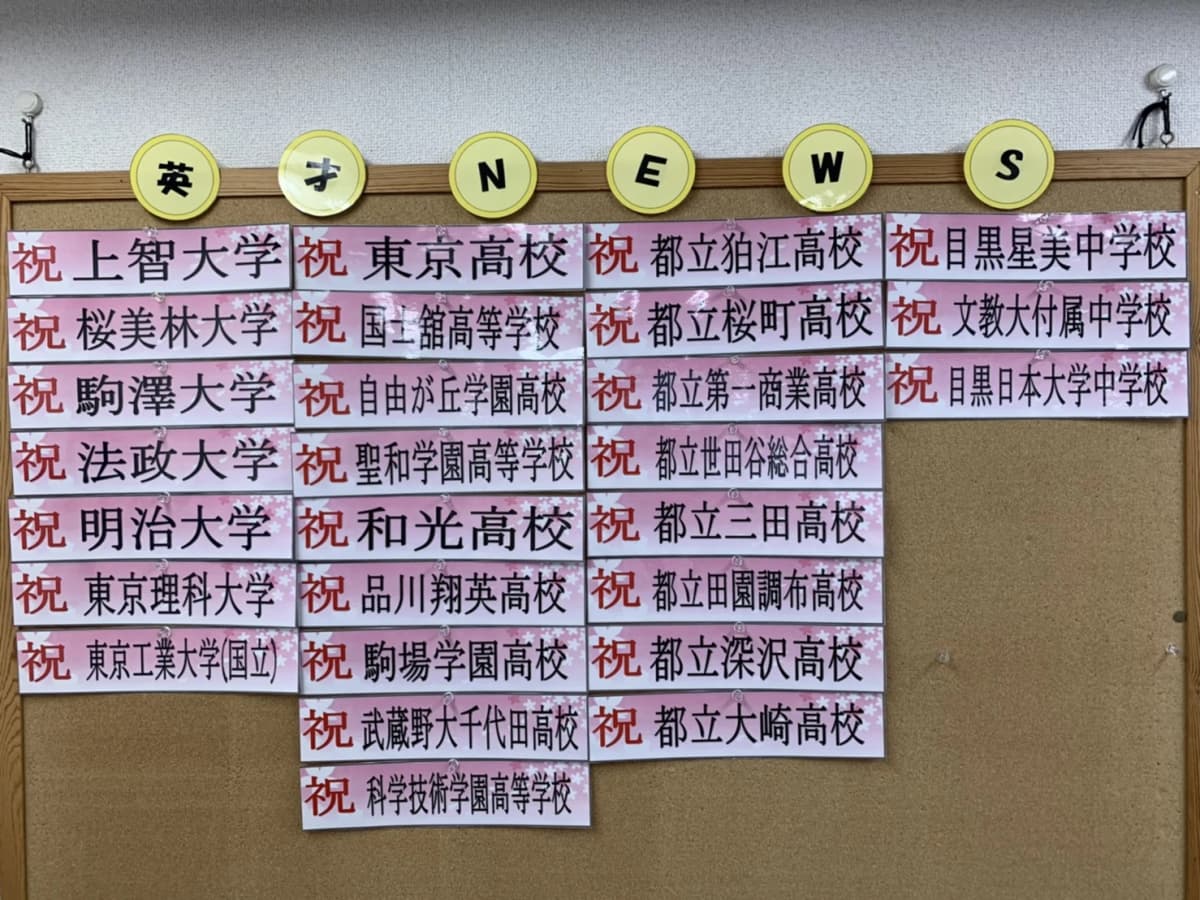 英才NEWS
祝 上智大学
祝 桜美林大学
祝 駒澤大学
祝 法政大学
祝 明治大学
祝 東京理科大学
祝 東京工業大学(国立)
祝 東京高校
祝 国士舘高等学校
祝 自由が丘学園高校
祝 聖和学園高等学校
祝 和光高校
祝 品川翔英高校
祝 駒場学園高校
祝 武蔵野大千代田高校
祝 科学技術学園高等学校
祝 都立狛江高校
祝 都立桜町高校
祝 都立第一商業高校
祝 都立世田谷総合高校
祝 都立三田高校
祝 都立田園調布高校
祝 都立深沢高校
祝 都立大崎高校
祝 目黒星美中学校
祝 文教大付属中学校
祝 目黒日本大学中学校